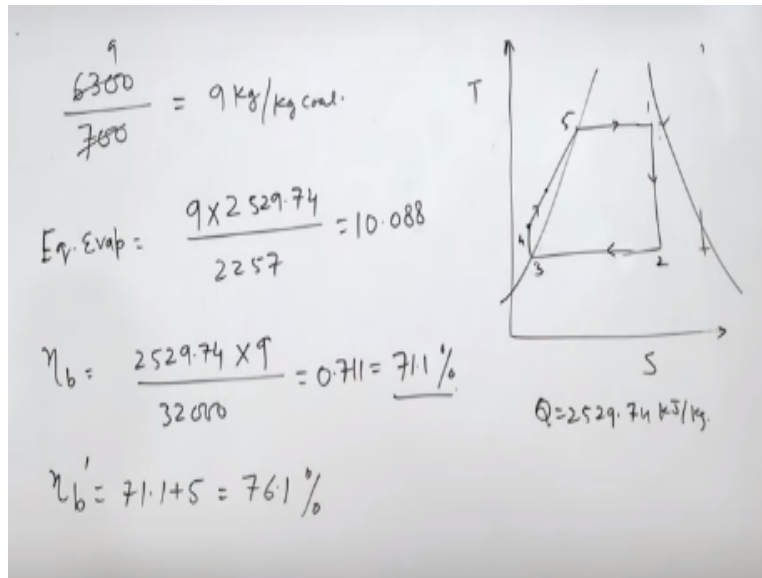 9
6300
700
= 9 kg/kg coal.
Eq. Evap = 9 x 2529.74 / 2257 = 10.088
ηb = 2529.74 x 9 / 32000 = 0.711 = 71.1 %
ηb' = 71.1 + 5 = 76.1 %
T
5
1
4
3
2
S
Q = 2529.74 kJ/kg.